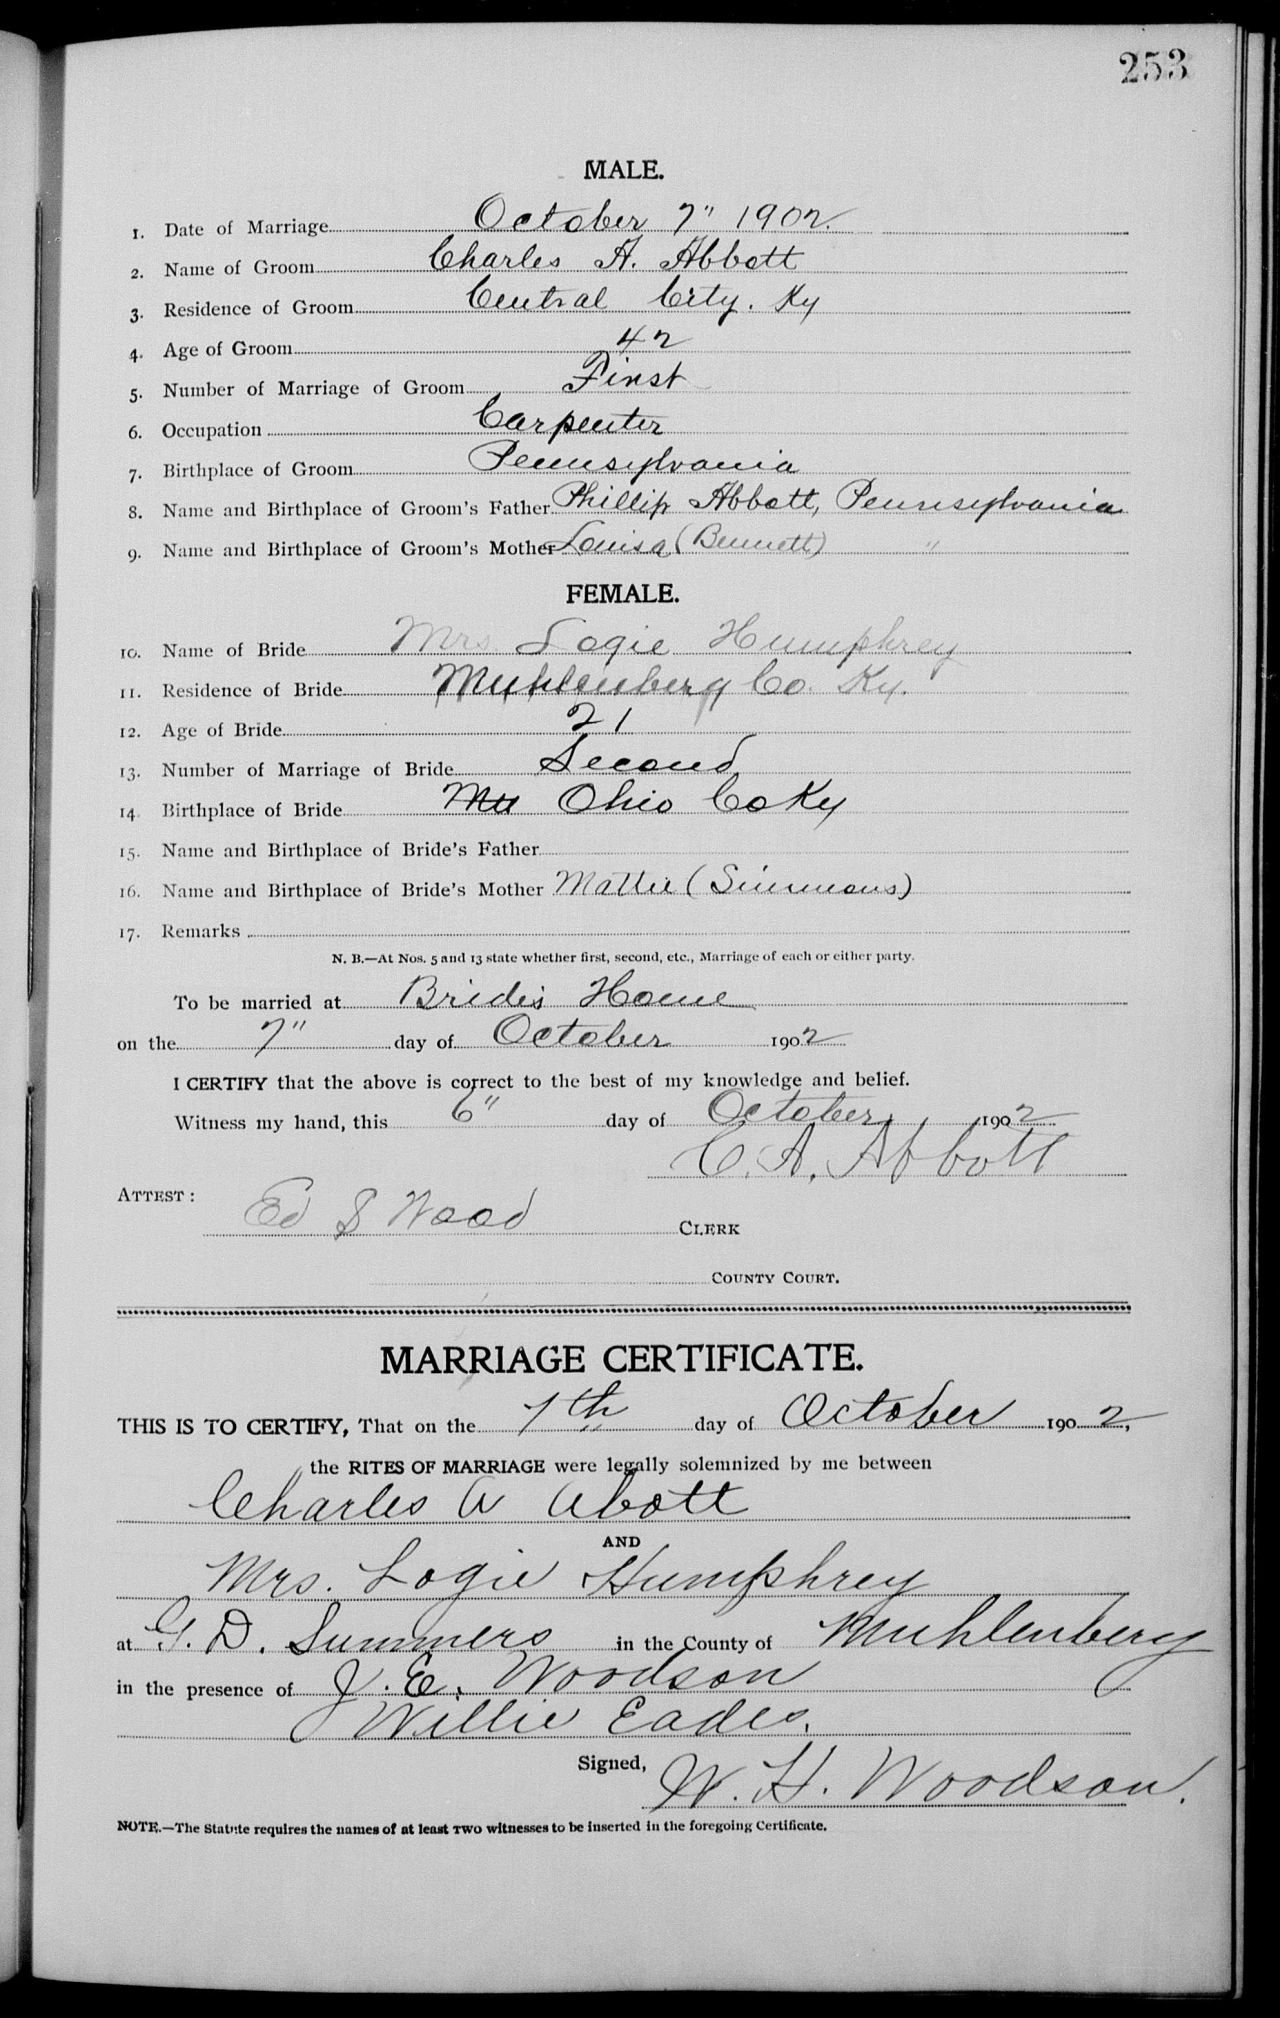 253
MALE.
1. Date of Marriage October 7" 1902.
2. Name of Groom Charles A. Abbott
3. Residence of Groom Central City. Ky
4. Age of Groom 42
5. Number of Marriage of Groom First
6. Occupation Carpenter
7. Birthplace of Groom Pennsylvania
8. Name and Birthplace of Groom's Father Phillip Abbott, Pennsylvania
9. Name and Birthplace of Groom's Mother Louisa (Bennett) "
FEMALE.
10. Name of Bride Mrs Logie Humphrey
11. Residence of Bride Muhlenberg Co. Ky.
12. Age of Bride 21
13. Number of Marriage of Bride Second
14. Birthplace of Bride Ohio Co Ky
15. Name and Birthplace of Bride's Father
16. Name and Birthplace of Bride's Mother Mattie (Simmons)
17. Remarks
N. B.—At Nos. 5 and 13 state whether first, second, etc., Marriage of each or either party.
To be married at Bride's Home
on the 7" day of October 1902
I CERTIFY that the above is correct to the best of my knowledge and belief.
Witness my hand, this 6" day of October 1902
C. A. Abbott
ATTEST:
Ed S Wood CLERK
COUNTY COURT.
MARRIAGE CERTIFICATE.
THIS IS TO CERTIFY, That on the 7th day of October 1902,
the RITES OF MARRIAGE were legally solemnized by me between
Charles A Abott
AND
Mrs. Logie Humphrey
at G. D. Summers in the County of Muhlenberg
in the presence of J. E. Woodson
Willie Eades.
Signed, W. H. Woodson.
NOTE.—The Statute requires the names of at least TWO witnesses to be inserted in the foregoing Certificate.